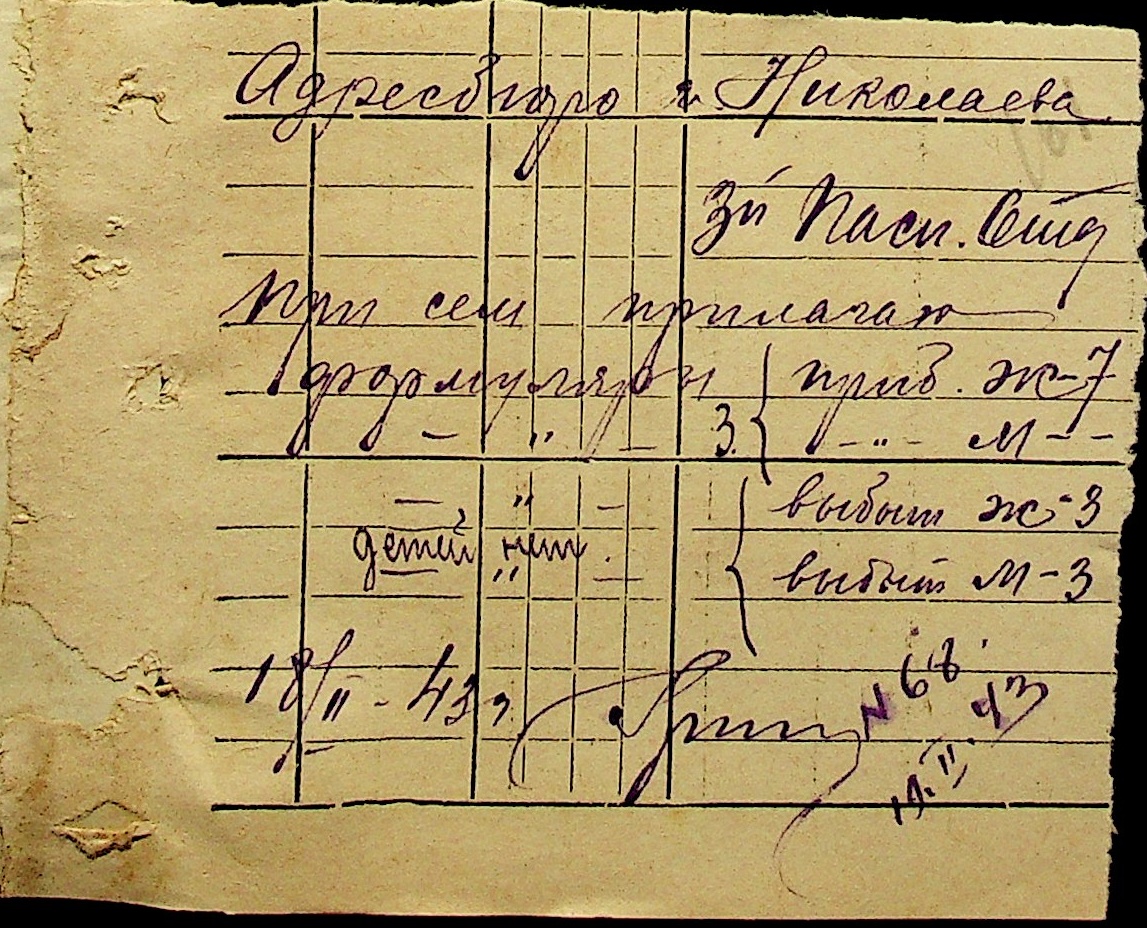 Адресбюро г. Николаева.
3й Пасп. Отд
При сем прилагаю
формуляры 3. { приб. ж-7
– " – – " – М – –
– " – { выбыт ж-3
детей нет.
– " – выбыт М-3
18/II - 43 г
N 68.
II. 43